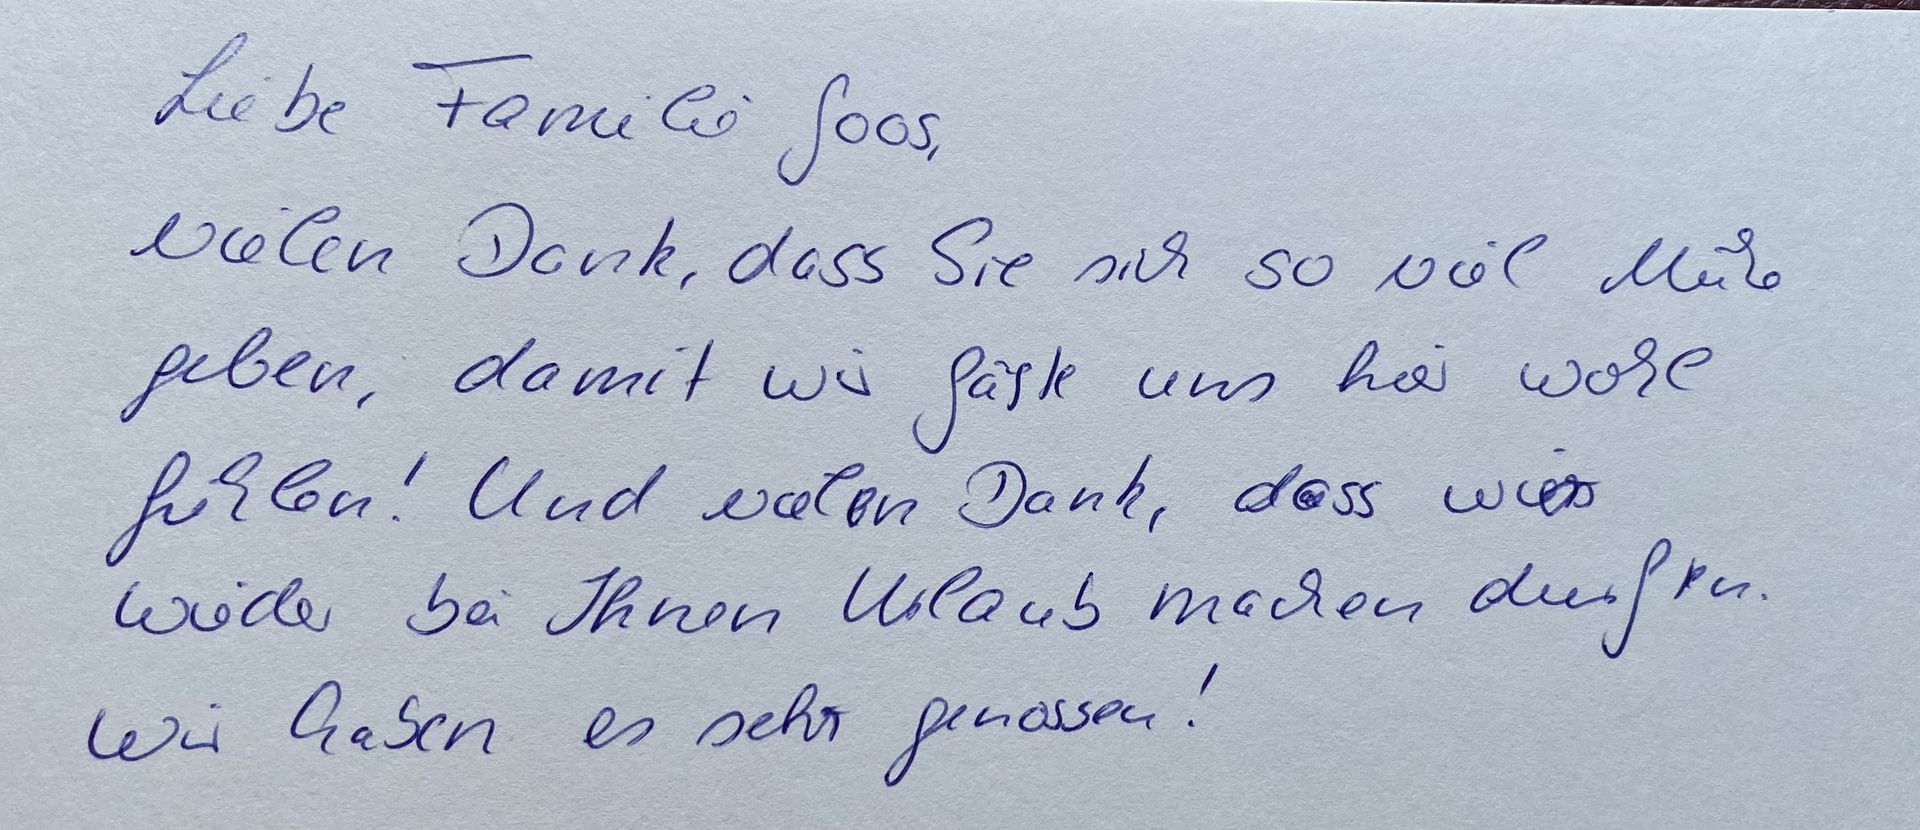 Liebe Familie Goos,
vielen Dank, dass Sie sich so viel Mühe
geben, damit wir Gäste uns hier wohl
fühlen! Und vielen Dank, dass wir
wieder bei Ihnen Urlaub machen durften.
Wir haben es sehr genossen!